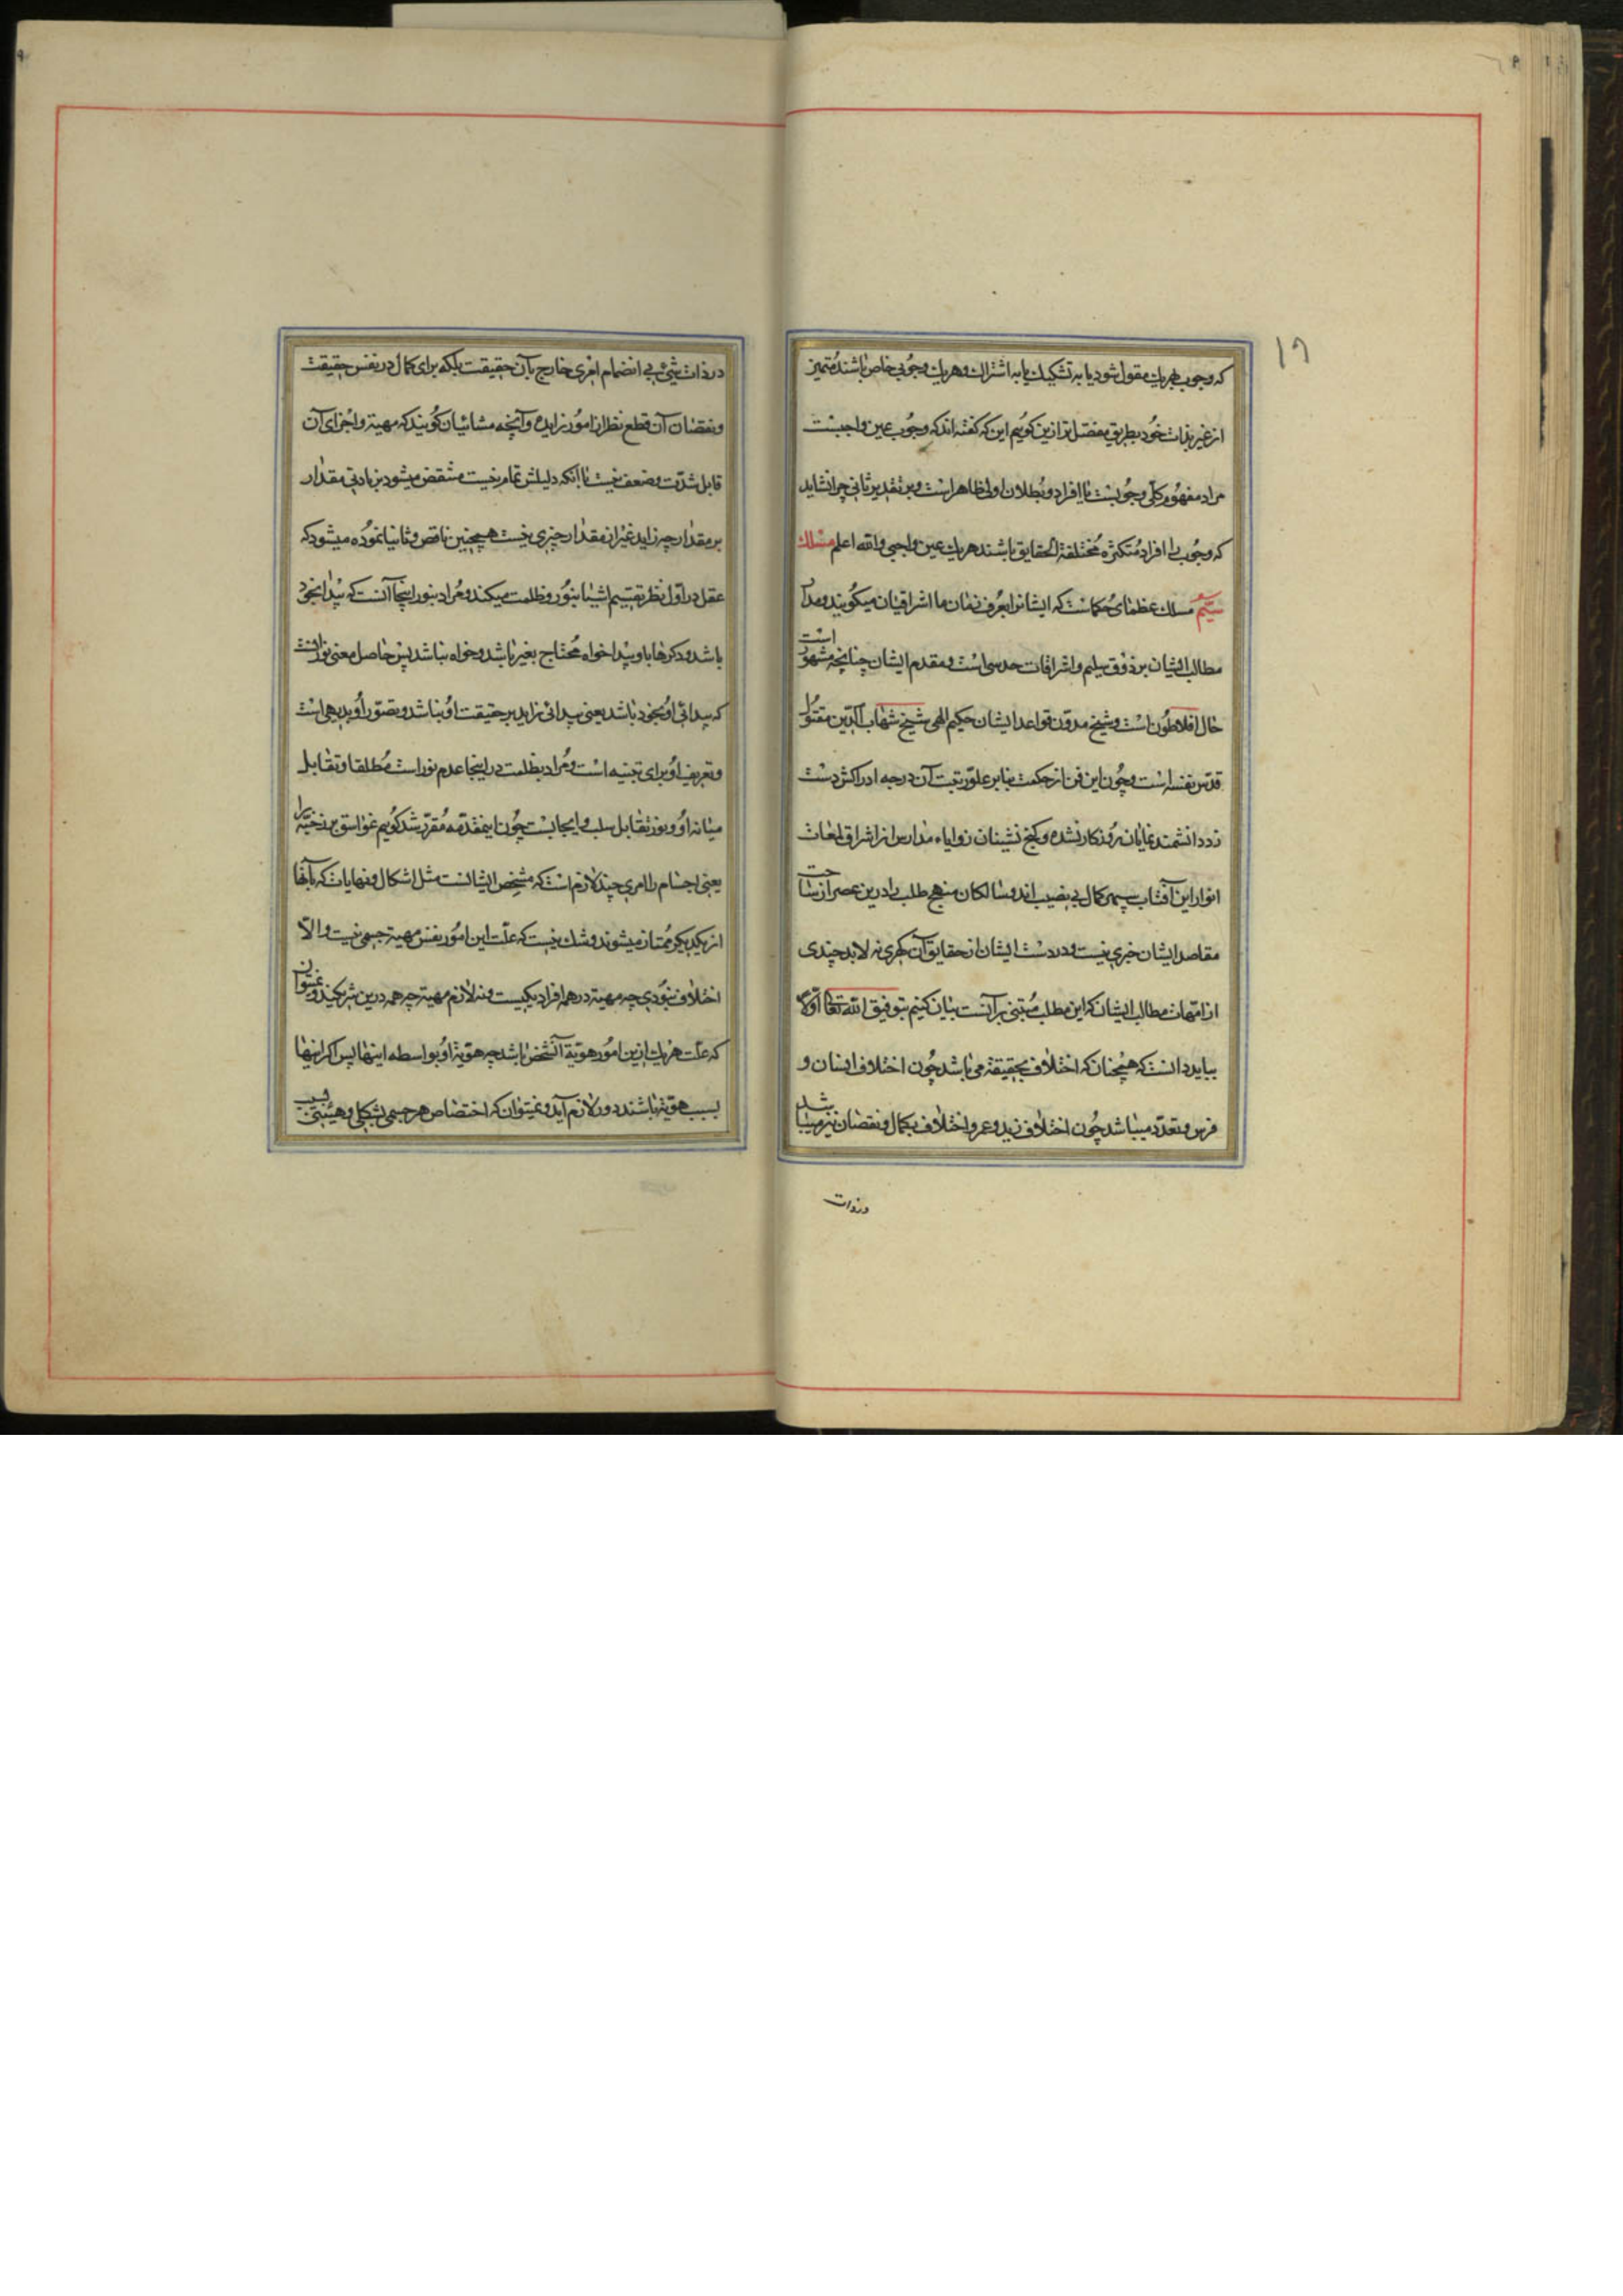 ۱۶
که وجوب بهریک مقول شود یا به تشکیک یا به اشتراک و هریک وجوبی خاص باشند متمیز
از غیر بذات خود بطریق مفصل تر ازین گوییم این که گفته اند که وجوب عین واجبست
مراد مفهوم کلی وجوبست یا افراد و بطلان اولی ظاهر است و بر تقدیر ثانی چرا نشاید
که وجوب را افراد متکثره مختلفة الحقایق باشند هریک عین واجبی والله اعلم مسلک
سیّم مسلک عظمای حکماست که ایشانرا بعرف زمان ما اشراقیان میگویند و مدار
مطالب ایشان بر ذوق سلیم و اشراقات حدسی است و مقدم ایشان چنانچه مشهور است
حال افلاطون است و شیخ مدون قواعد ایشان حکیم الهی شیخ شهاب الدین مقتول
قدس نفسه است و چون این فن از حکمت بنابر علو رتبت آن درجه ادراکش دست
زد دانشمند نمایان روزگار نشده و کنج نشینان زوایاء مدارس از اشراق لمعات
انوار این آفتاب سپهر کمال بی نصیب اند و سالکان منهج طلب را درین عصر از ساحت
مقاصد ایشان خبری نیست و در دست ایشان از حقایق آن گهری نه لابد چندی
از امهات مطالب ایشان که این مطلب مبتنی بر آنست بیان کنیم بتوفیق الله تعالی اولا
بباید دانست که همچنان که اختلاف بحقیقة می باشد چون اختلاف انسان و
فرس و تعدد میباشد چون اختلاف زید و عمرو اختلاف بکمال و نقصان نیز میباشد
در ذات
در ذات شیء بی انضمام امری خارج بآن حقیقت بلکه برای کمال در نفس حقیقت
و نقصان آن قطع نظر از امور زایده و آنچه مشائیان گویند که مهیة و اجزای آن
قابل شدت و ضعف نیست با آنکه دلیلش تمام نیست منتقض میشود بزیادتی مقدار
بر مقدار چه زاید غیر از مقدار چیزی نیست همچنین ناقص و ثانیا نموده میشود که
عقل در اول نظر تقسیم اشیا بنور و ظلمت میکند و مراد بنور اینجا آنست که پیدا بخود
باشد و دکرها باو پیدا خواه محتاج بغیر باشد و خواه نباشد پس حاصل معنی نور آنست
که پیدائی او بخود باشد یعنی پیدائی زاید بر حقیقت او نباشد و تصور او بدیهی است
و تعریف او برای تنبیه است و مراد بظلمت در اینجا عدم نور است مطلقا و تقابل
میانه او و نور تقابل سلب و ایجابست چون اینمقدمه مقرر شد گوییم غواسق برزخیه را
یعنی اجسام را امری چند لازم است که مشخص ایشانست مثل اشکال و نهایات که بآنها
از یکدیگر ممتاز میشوند و شک نیست که علت این امور نفس مهیة جسمی نیست و الا
اختلاف نبودی چه مهیة در همه افراد یکیست و نه لازم مهیة چه همه درین شریکند و نمیتوان
که علت هریک ازین امور هویة آنشخص باشد چه هویة او بواسطه اینهاست پس اگر اینها
بسبب هویة باشند دور لازم آید و نمیتوان که اختصاص هر جسمی بشکلی و هیئتی بسبب